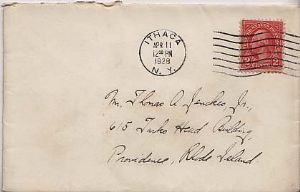 ITHACA
APR 11
12 30 PM
1928
N. Y.
2 2
Mr. Thomas A. Jenckes Jr.,
615 Turks Head Building
Providence, Rhode Island